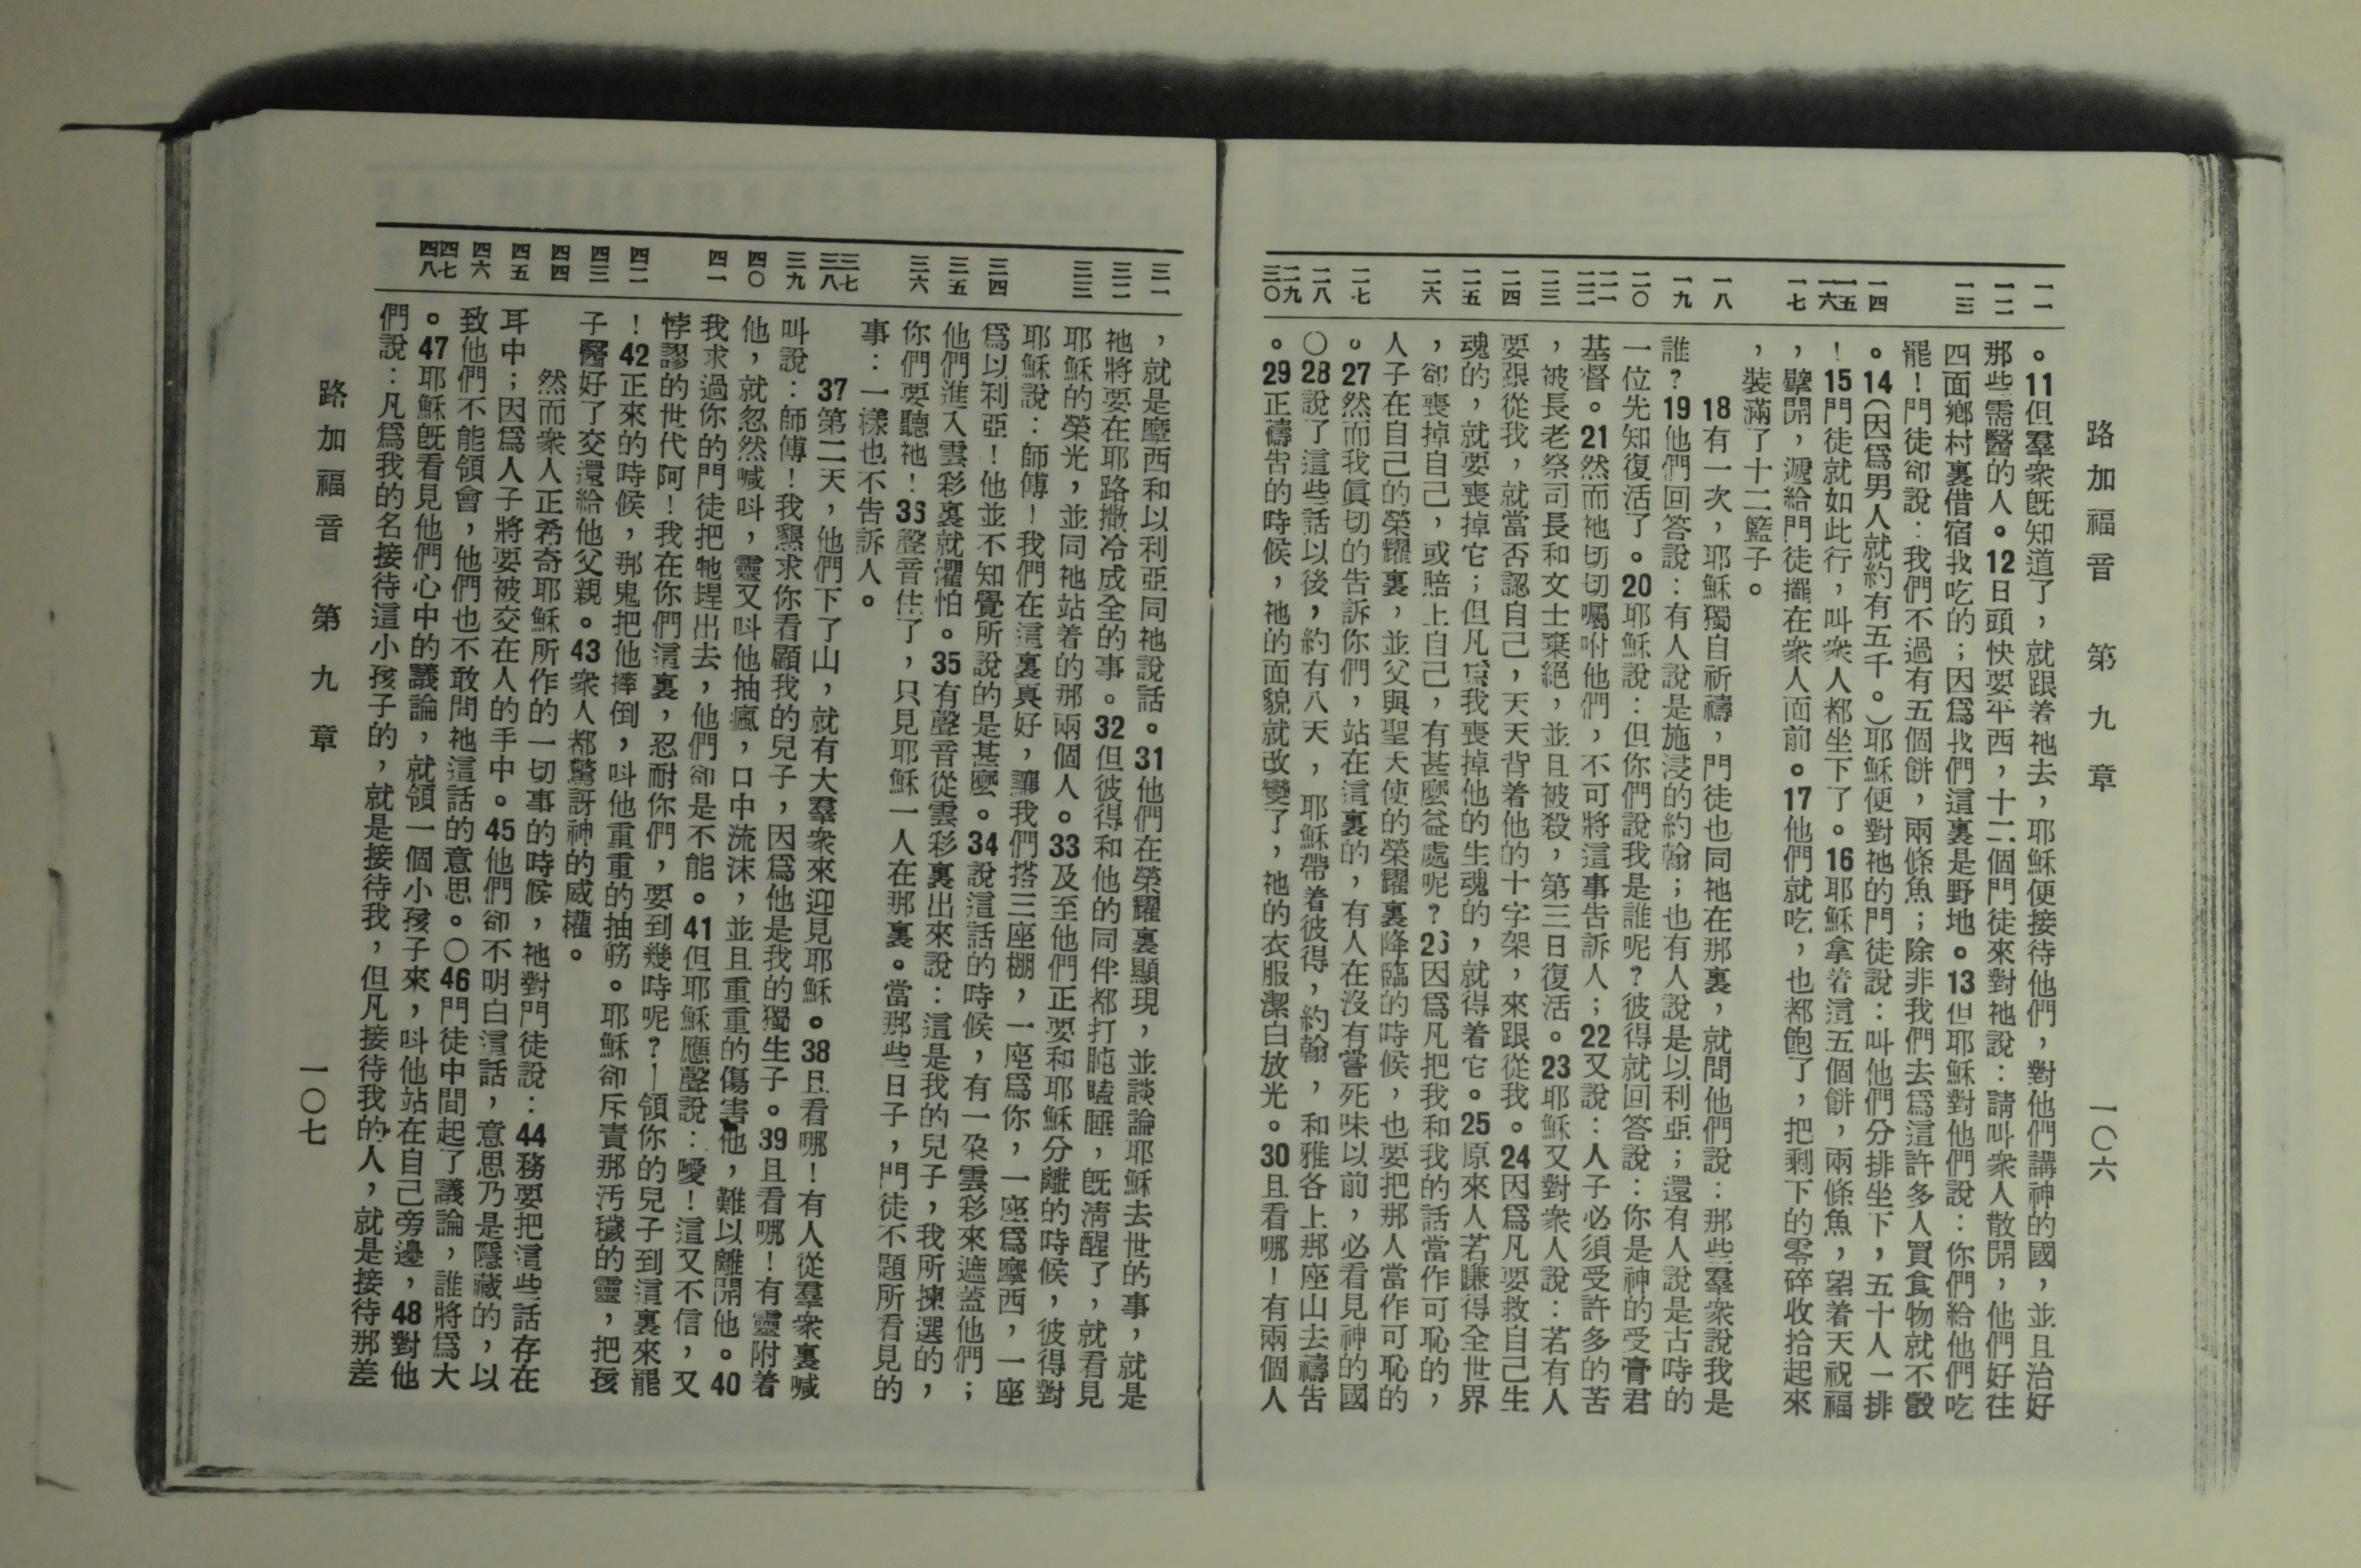 路加福音 第九章 一〇六
一一 一二 一三 一四 一五 一六 一七 一八 一九 二〇 二一 二二 二三 二四 二五 二六 二七 二八 二九 三〇
。11但羣衆旣知道了，就跟着祂去，耶穌便接待他們，對他們講神的國，並且治好
那些需醫的人。12日頭快要平西，十二個門徒來對祂說：請叫衆人散開，他們好往
四面鄉村裏借宿找吃的；因爲我們這裏是野地。13但耶穌對他們說：你們給他們吃
罷！門徒卻說：我們不過有五個餅，兩條魚；除非我們去爲這許多人買食物就不彀
。14（因爲男人就約有五千。）耶穌便對祂的門徒說：叫他們分排坐下，五十人一排
！15門徒就如此行，叫衆人都坐下了。16耶穌拿着這五個餅，兩條魚，望着天祝福
，擘開，遞給門徒擺在衆人面前。17他們就吃，也都飽了，把剩下的零碎收拾起來
，裝滿了十二籃子。
18有一次，耶穌獨自祈禱，門徒也同祂在那裏，就問他們說：那些羣衆說我是
誰？19他們回答說：有人說是施浸的約翰；也有人說是以利亞；還有人說是古時的
一位先知復活了。20耶穌說：但你們說我是誰呢？彼得就回答說：你是神的受膏君
基督。21然而祂切切囑咐他們，不可將這事告訴人；22又說：人子必須受許多的苦
，被長老祭司長和文士棄絕，並且被殺，第三日復活。23耶穌又對衆人說：若有人
要跟從我，就當否認自己，天天背着他的十字架，來跟從我。24因爲凡要救自己生
魂的，就要喪掉它；但凡爲我喪掉他的生魂的，就得着它。25原來人若賺得全世界
，卻喪掉自己，或賠上自己，有甚麼益處呢？26因爲凡把我和我的話當作可恥的，
人子在自己的榮耀裏，並父與聖天使的榮耀裏降臨的時候，也要把那人當作可恥的
。27然而我眞切的告訴你們，站在這裏的，有人在沒有嘗死味以前，必看見神的國
〇28說了這些話以後，約有八天，耶穌帶着彼得，約翰，和雅各上那座山去禱告
。29正禱告的時候，祂的面貌就改變了，祂的衣服潔白放光。30且看哪！有兩個人
三一 三二 三三 三四 三五 三六 三七 三八 三九 四〇 四一 四二 四三 四四 四五 四六 四七 四八
，就是摩西和以利亞同祂說話。31他們在榮耀裏顯現，並談論耶穌去世的事，就是
祂將要在耶路撒冷成全的事。32但彼得和他的同伴都打盹瞌睡，旣清醒了，就看見
耶穌的榮光，並同祂站着的那兩個人。33及至他們正要和耶穌分離的時候，彼得對
耶穌說：師傅！我們在這裏真好，讓我們搭三座棚，一座爲你，一座爲摩西，一座
爲以利亞！他並不知覺所說的是甚麼。34說這話的時候，有一朶雲彩來遮蓋他們；
他們進入雲彩裏就懼怕。35有聲音從雲彩裏出來說：這是我的兒子，我所揀選的，
你們要聽祂！36聲音住了，只見耶穌一人在那裏。當那些日子，門徒不題所看見的
事：一樣也不告訴人。
37第二天，他們下了山，就有大羣衆來迎見耶穌。38且看哪！有人從羣衆裏喊
叫說：師傅！我懇求你看顧我的兒子，因爲他是我的獨生子。39且看哪！有靈附着
他，就忽然喊叫，靈又叫他抽瘋，口中流沫，並且重重的傷害他，難以離開他。40
我求過你的門徒把牠趕出去，他們卻是不能。41但耶穌應聲說：噯！這又不信，又
悖謬的世代阿！我在你們這裏，忍耐你們，要到幾時呢？—領你的兒子到這裏來罷
！42正來的時候，那鬼把他摔倒，叫他重重的抽筋。耶穌卻斥責那污穢的靈，把孩
子醫好了交還給他父親。43衆人都驚訝神的威權。
然而衆人正希奇耶穌所作的一切事的時候，祂對門徒說：44務要把這些話存在
耳中；因爲人子將要被交在人的手中。45他們卻不明白這話，意思乃是隱藏的，以
致他們不能領會，他們也不敢問祂這話的意思。〇46門徒中間起了議論，誰將爲大
。47耶穌旣看見他們心中的議論，就領一個小孩子來，叫他站在自己旁邊，48對他
們說：凡爲我的名接待這小孩子的，就是接待我，但凡接待我的人，就是接待那差
路加福音 第九章 一〇七